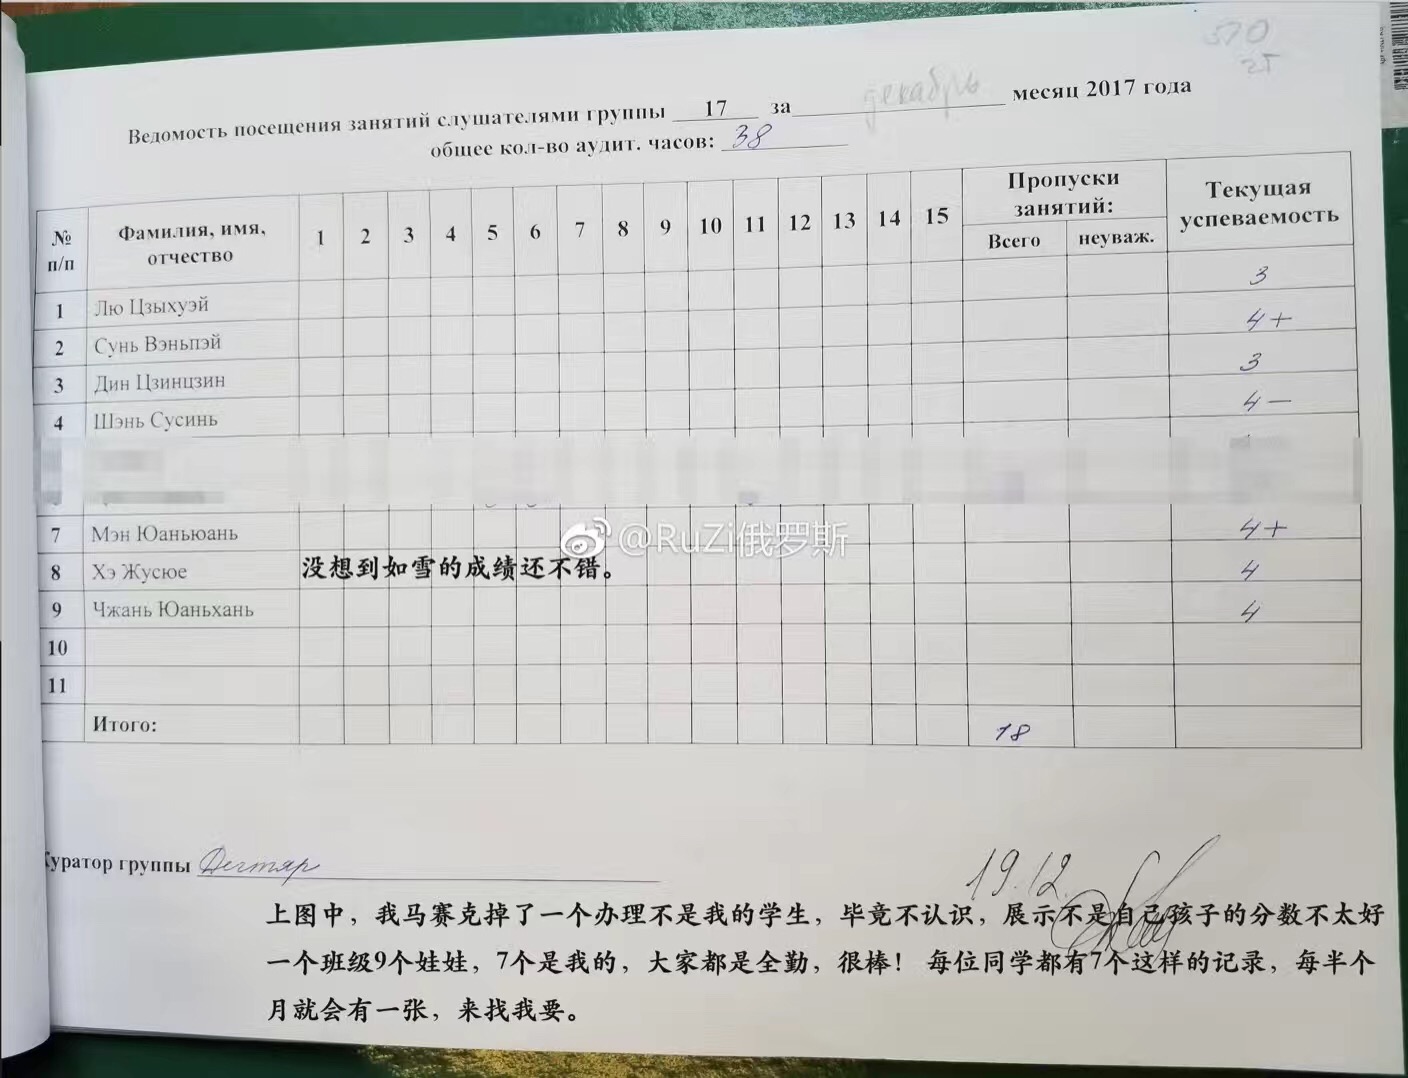 570
2т
Ведомость посещения занятий слушателями группы 17 за декабрь месяц 2017 года
общее кол-во аудит. часов: 38
№ п/п Фамилия, имя, отчество 1 2 3 4 5 6 7 8 9 10 11 12 13 14 15 Пропуски занятий: Всего неуваж. Текущая успеваемость
1 Лю Цзыхуэй 3
2 Сунь Вэньпэй 4+
3 Дин Цзинцзин 3
4 Шэнь Сусинь 4-
7 Мэн Юаньюань 4+
@RuZi俄罗斯
8 Хэ Жусюе 没想到如雪的成绩还不错。 4
9 Чжань Юаньхань 4
10
11
Итого: 18
Куратор группы Дегтяр
19.12.
上图中，我马赛克掉了一个办理不是我的学生，毕竟不认识，展示不是自己孩子的分数不太好
一个班级9个娃娃，7个是我的，大家都是全勤，很棒！ 每位同学都有7个这样的记录，每半个
月就会有一张，来找我要。